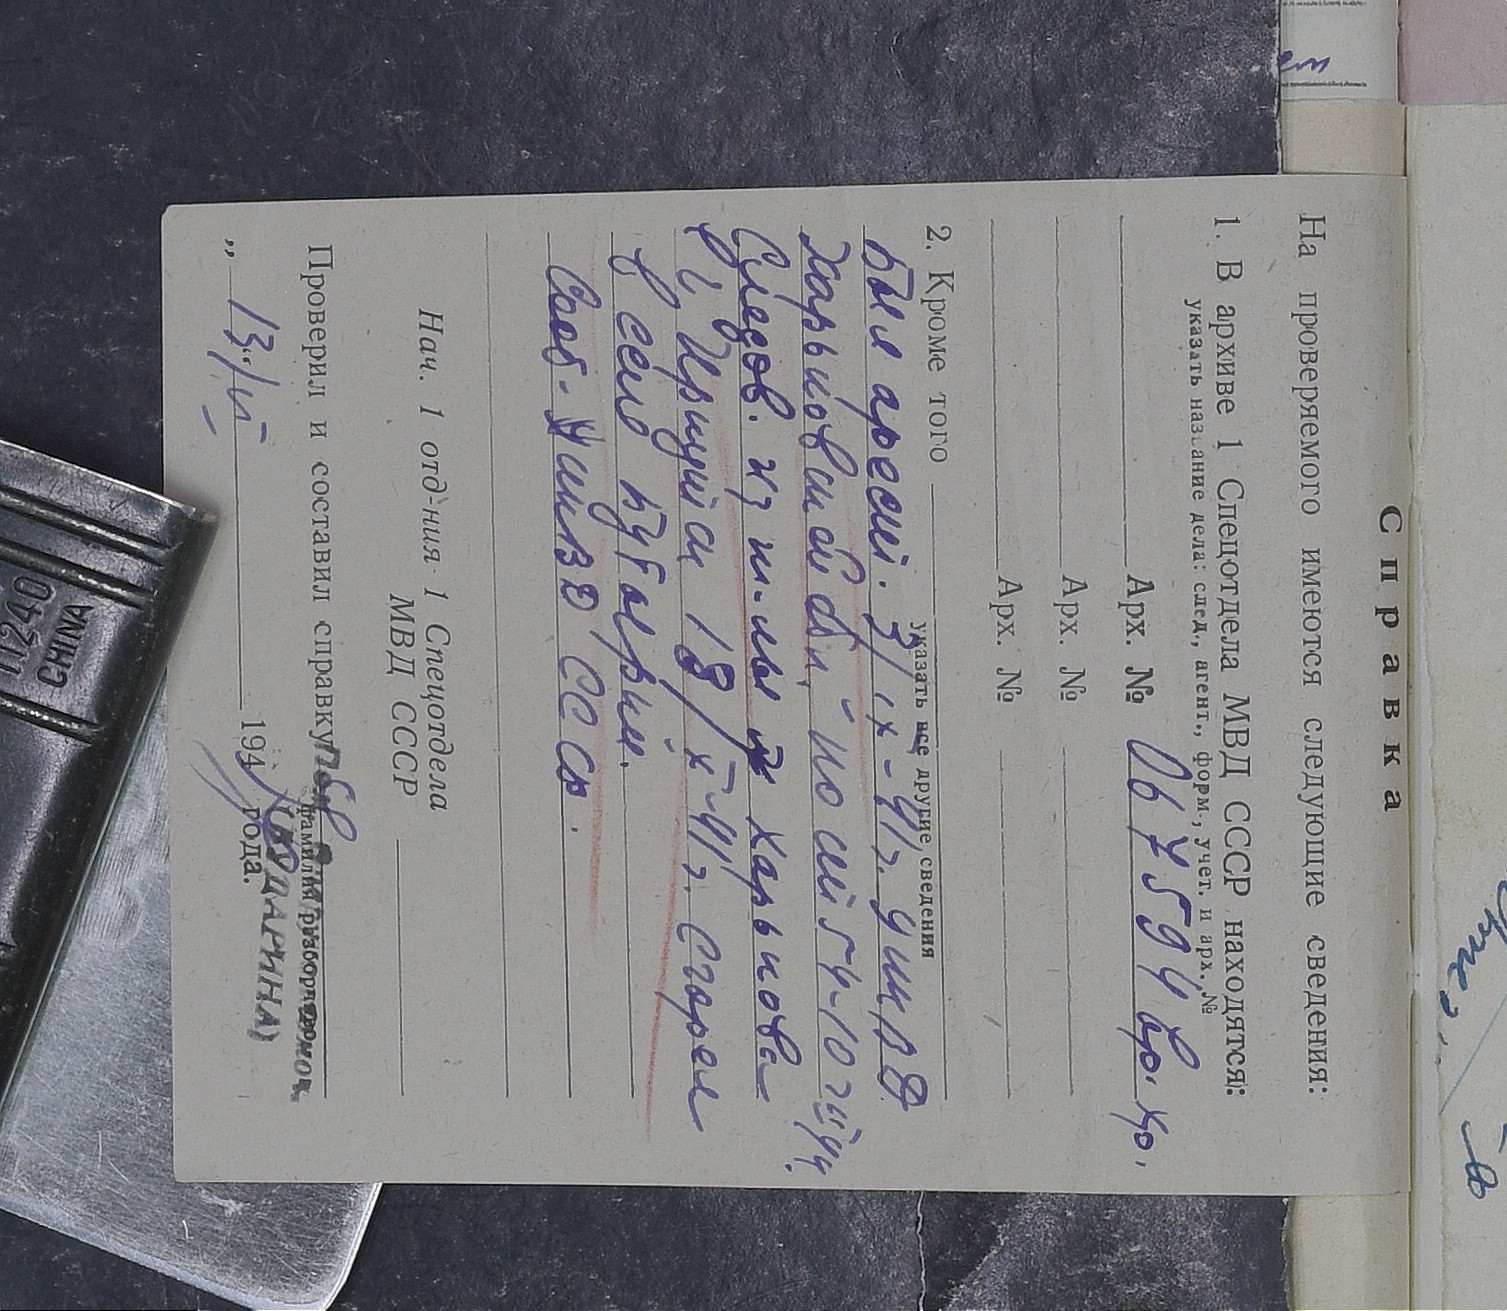 Справка
На проверяемого имеются следующие сведения:
1. В архиве 1 Спецотдела МВД СССР находятся:
указать название дела: след., агент., форм., учет. и арх. №
Арх. № 067594
Арх. №
Арх. №
2. Кроме того
указать все другие сведения
был арест. 3/IX-41г. УНКВД
Харьковской обл. по ст 54-10 ч II УК.
Следов. из т-мы г Харькова
в г. Иркутск 18/X-41г. Сгорел
в селе
Сооб. НКВД СССР.
Нач. 1 отд-ния 1 Спецотдела
МВД СССР
Проверил и составил справку
фамилия разборчиво
„ 13"/II 194 года.
11240
CHINA